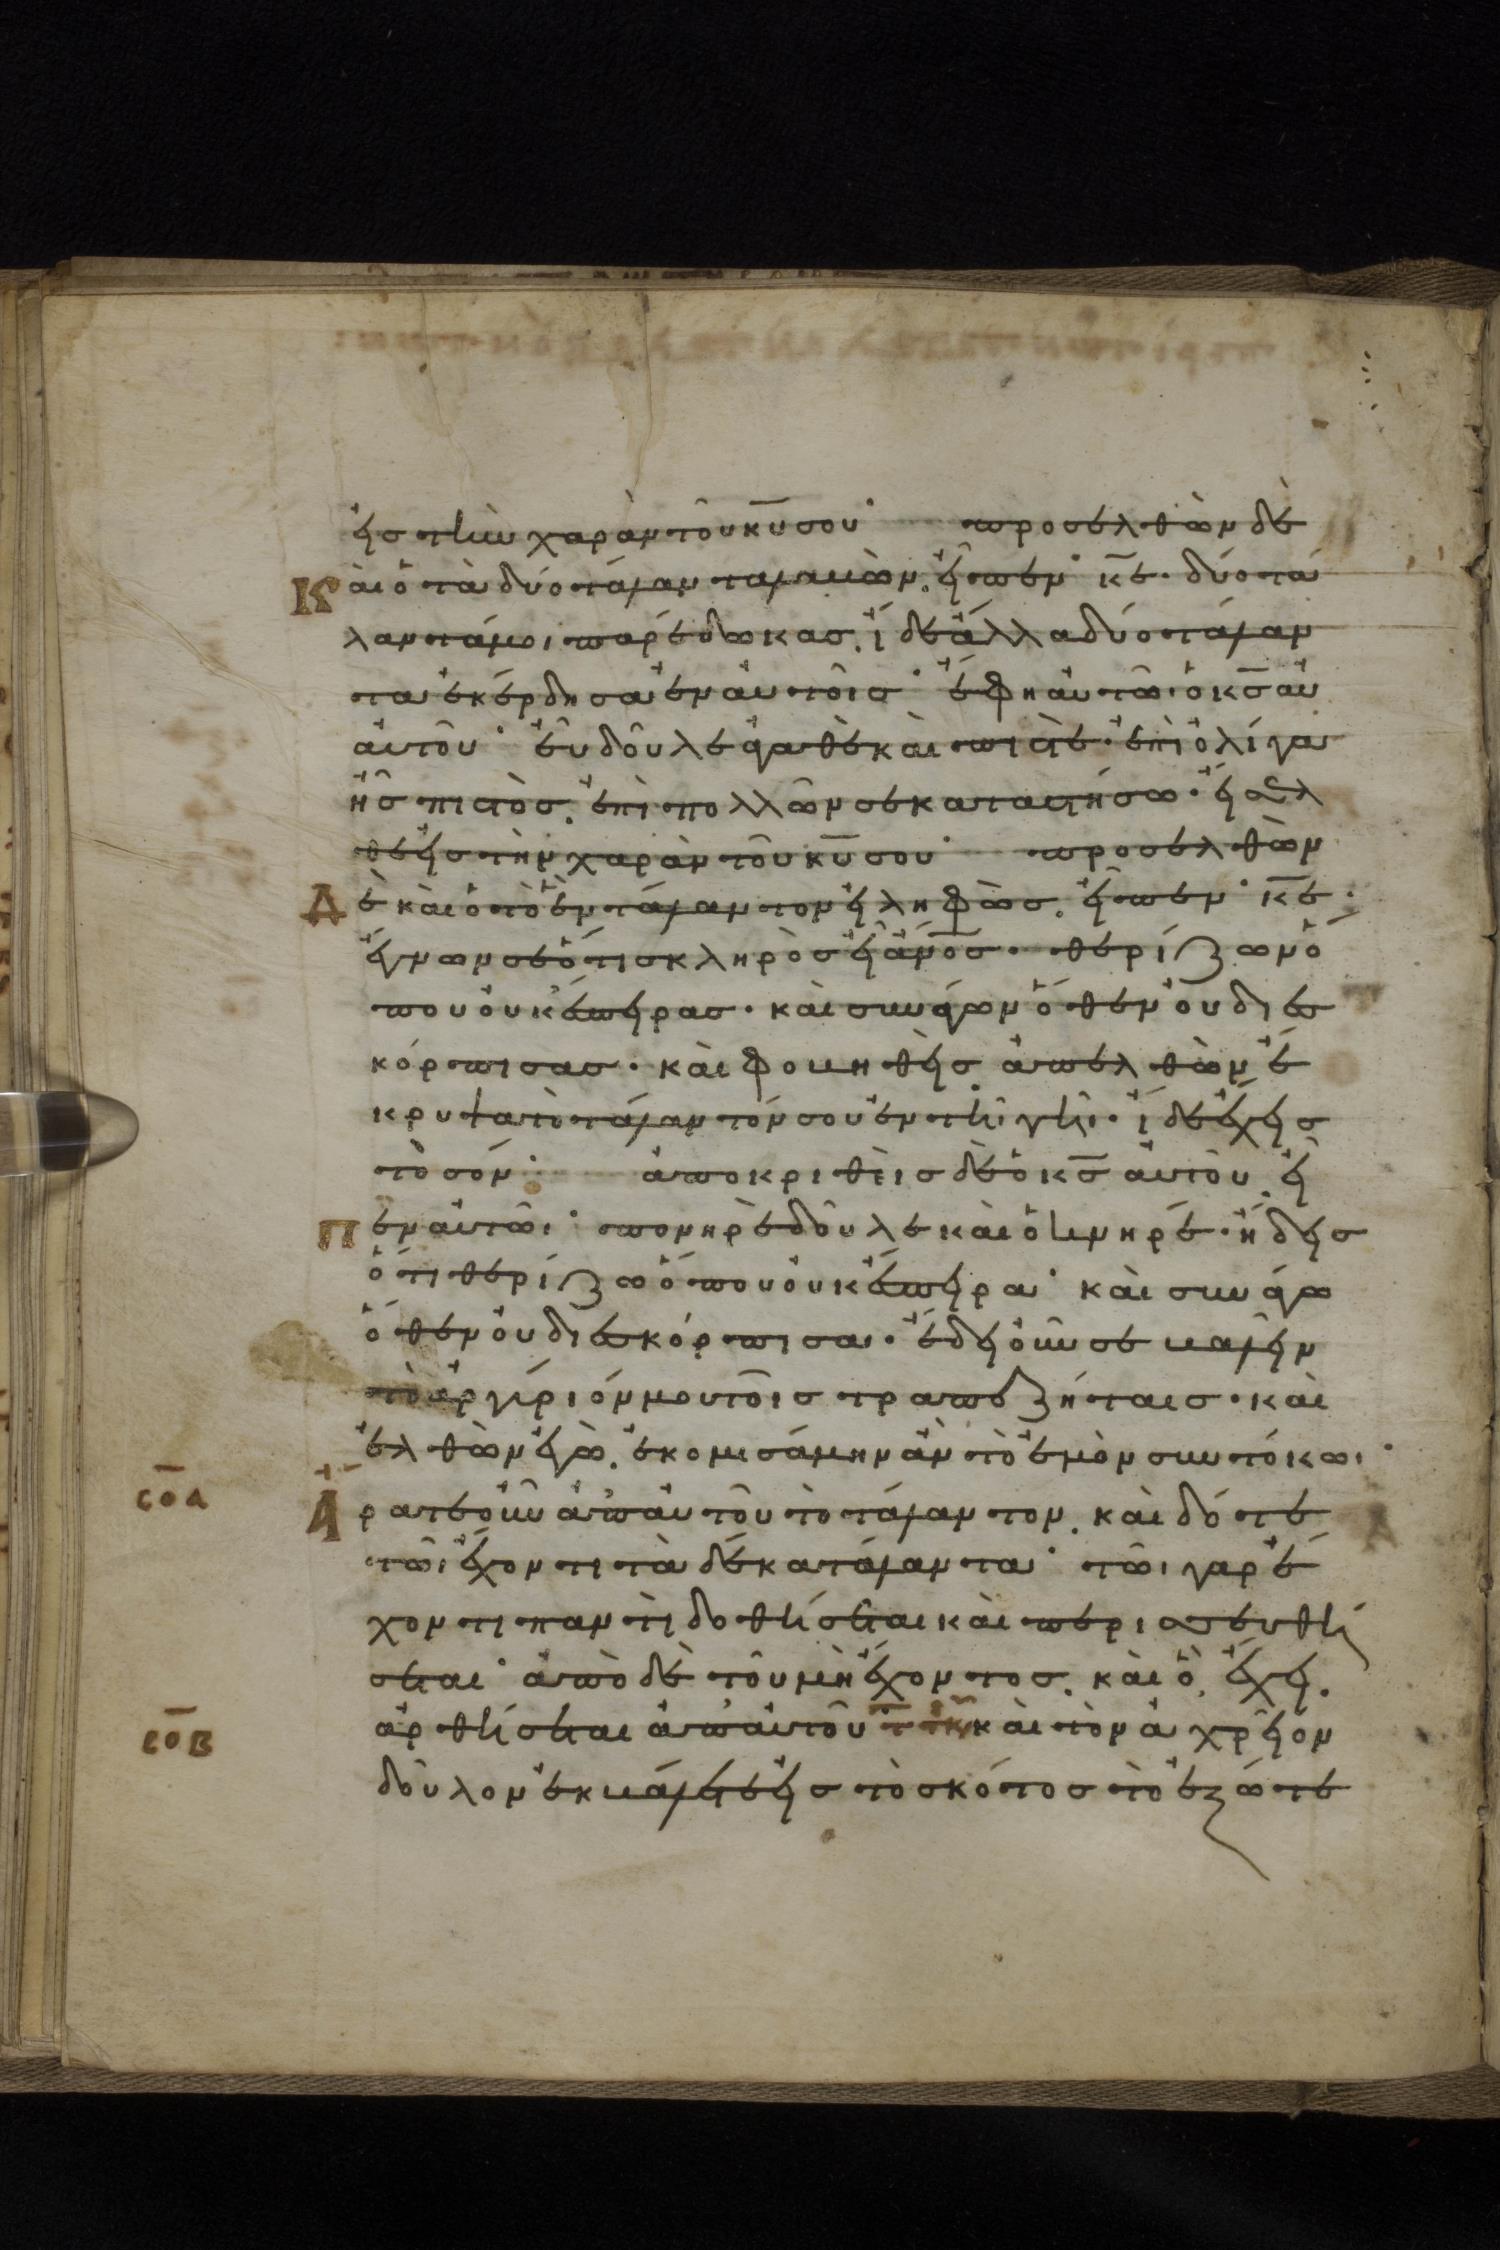 εἰς τὴν χαρὰν τοῦ κ̅υ̅ σου· προσελθὼν δὲ
Καὶ ὁ τὰ δύο τάλαντα λαβὼν. εἶπεν· κ̅ε̅· δύο τά
λαντά μοι παρέδωκας. ἴδε ἄλλα δύο τάλαν
τα ἐκέρδησα ἐν αὐτοῖς· ἔφη αὐτῶι ὁ κ̅ς̅ αὐ
αὐτοῦ· εὖ δοῦλε ἀγαθὲ καὶ πιστὲ· ἐπὶ ὀλίγα
ἦς πιστὸς. ἐπὶ πολλῶν σε καταστήσω· εἴσελ
θε εἰς τὴν χαρὰν τοῦ κ̅υ̅ σου· προσελθὼν
Δὲ καὶ ὁ τὸ ἓν τάλαντον εἰληφὼς. εἶπεν· κ̅ε̅·
ἔγνων σε ὅτι σκληρὸς εἶ α̅ν̅ο̅ς̅· θερίζων ὅ
που οὐκ ἔσπειρας· καὶ συνάγων ὅθεν οὐ διεσ
κόρπισας· καὶ φοβηθεὶς ἀπελθὼν ἔ
κρυψα τὸ τάλαντόν σου ἐν τῆι γῆι· ἴδε ἔχεις
τὸ σόν· ἀποκριθεὶς δὲ ὁ κ̅ς̅ αὐτοῦ. εἶ
Πεν αὐτῶι· πονηρὲ δοῦλε καὶ ὀκνηρέ· ἤδεις
ὅτι θερίζω ὅπου οὐκ ἔσπειρα· καὶ συνάγω
ὅθεν οὐ διεσκόρπισα· ἔδει οὖν σε βαλεῖν
τὸ ἀργύριόν μου τοῖς τραπεζήταις· καὶ
ἐλθὼν ἐγὼ. ἐκομισάμην ἂν τὸ ἐμὸν συν τόκωι·
ϲ̅ο̅α̅ Ἄρατε οὖν ἀπ' αὐτοῦ το τάλαντον. καὶ δότε
τῶι ἔχοντι τὰ δέκα τάλαντα· τῶι γαρ ἔ
χοντι παντὶ δοθήσεται καὶ περισσευθή
σεται· ἀπὸ δὲ τοῦ μὴ ἔχοντος. καὶ ὃ ἔχει.
ϲ̅ο̅β̅ ἀρθήσεται ἀπ' αὐτοῦ καὶ τὸν ἀχρεῖον
δοῦλον ἐκβάλετε εἰς τὸ σκότος τὸ ἐξώτε